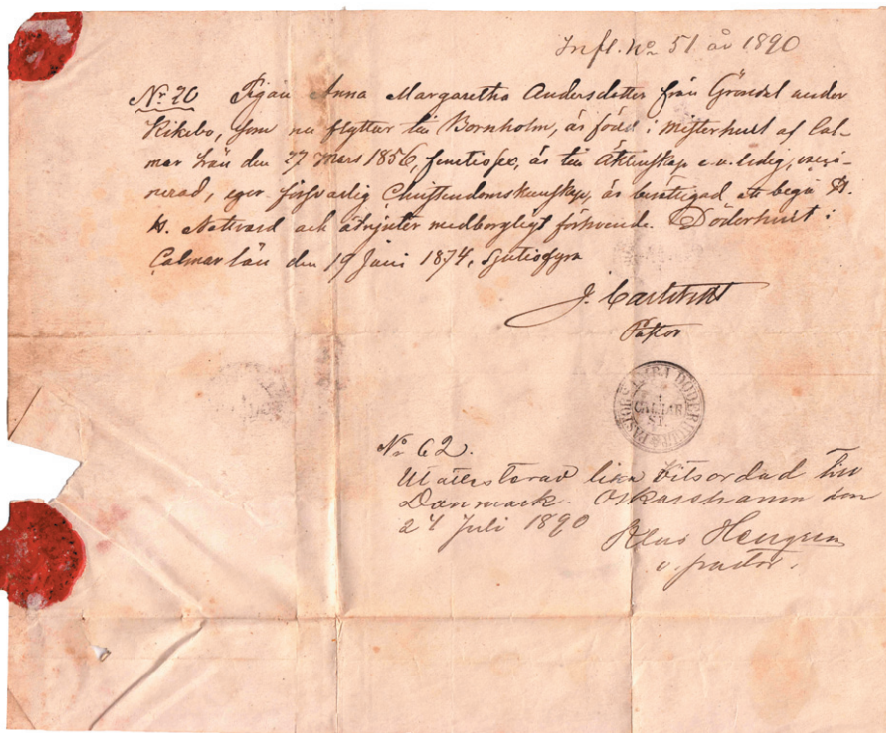 Infl. No 51 år 1890
No 20 Pigan Anna Margaretha Andersdotter från Gröndal under
Kikebo, som nu flyttar till Bornholm, är född i Misterhult af Cal-
mar Län den 27 Mars 1856, femtiosex, är till äktenskap ledig, vacci-
nerad, eger försvarlig Christendomskunskap, är berättigad att begå H.
H. Nattvard och åtnjuter medborgligt förtroende. Döderhult i
Calmar län den 19 Juni 1874, sjutiofyra
J.
Pastor
CALMAR
ST.
No 62.
Utattesterad lika Vitsordad till
Danmark. Oskarshamn den
24 Juli 1890
v. pastor.